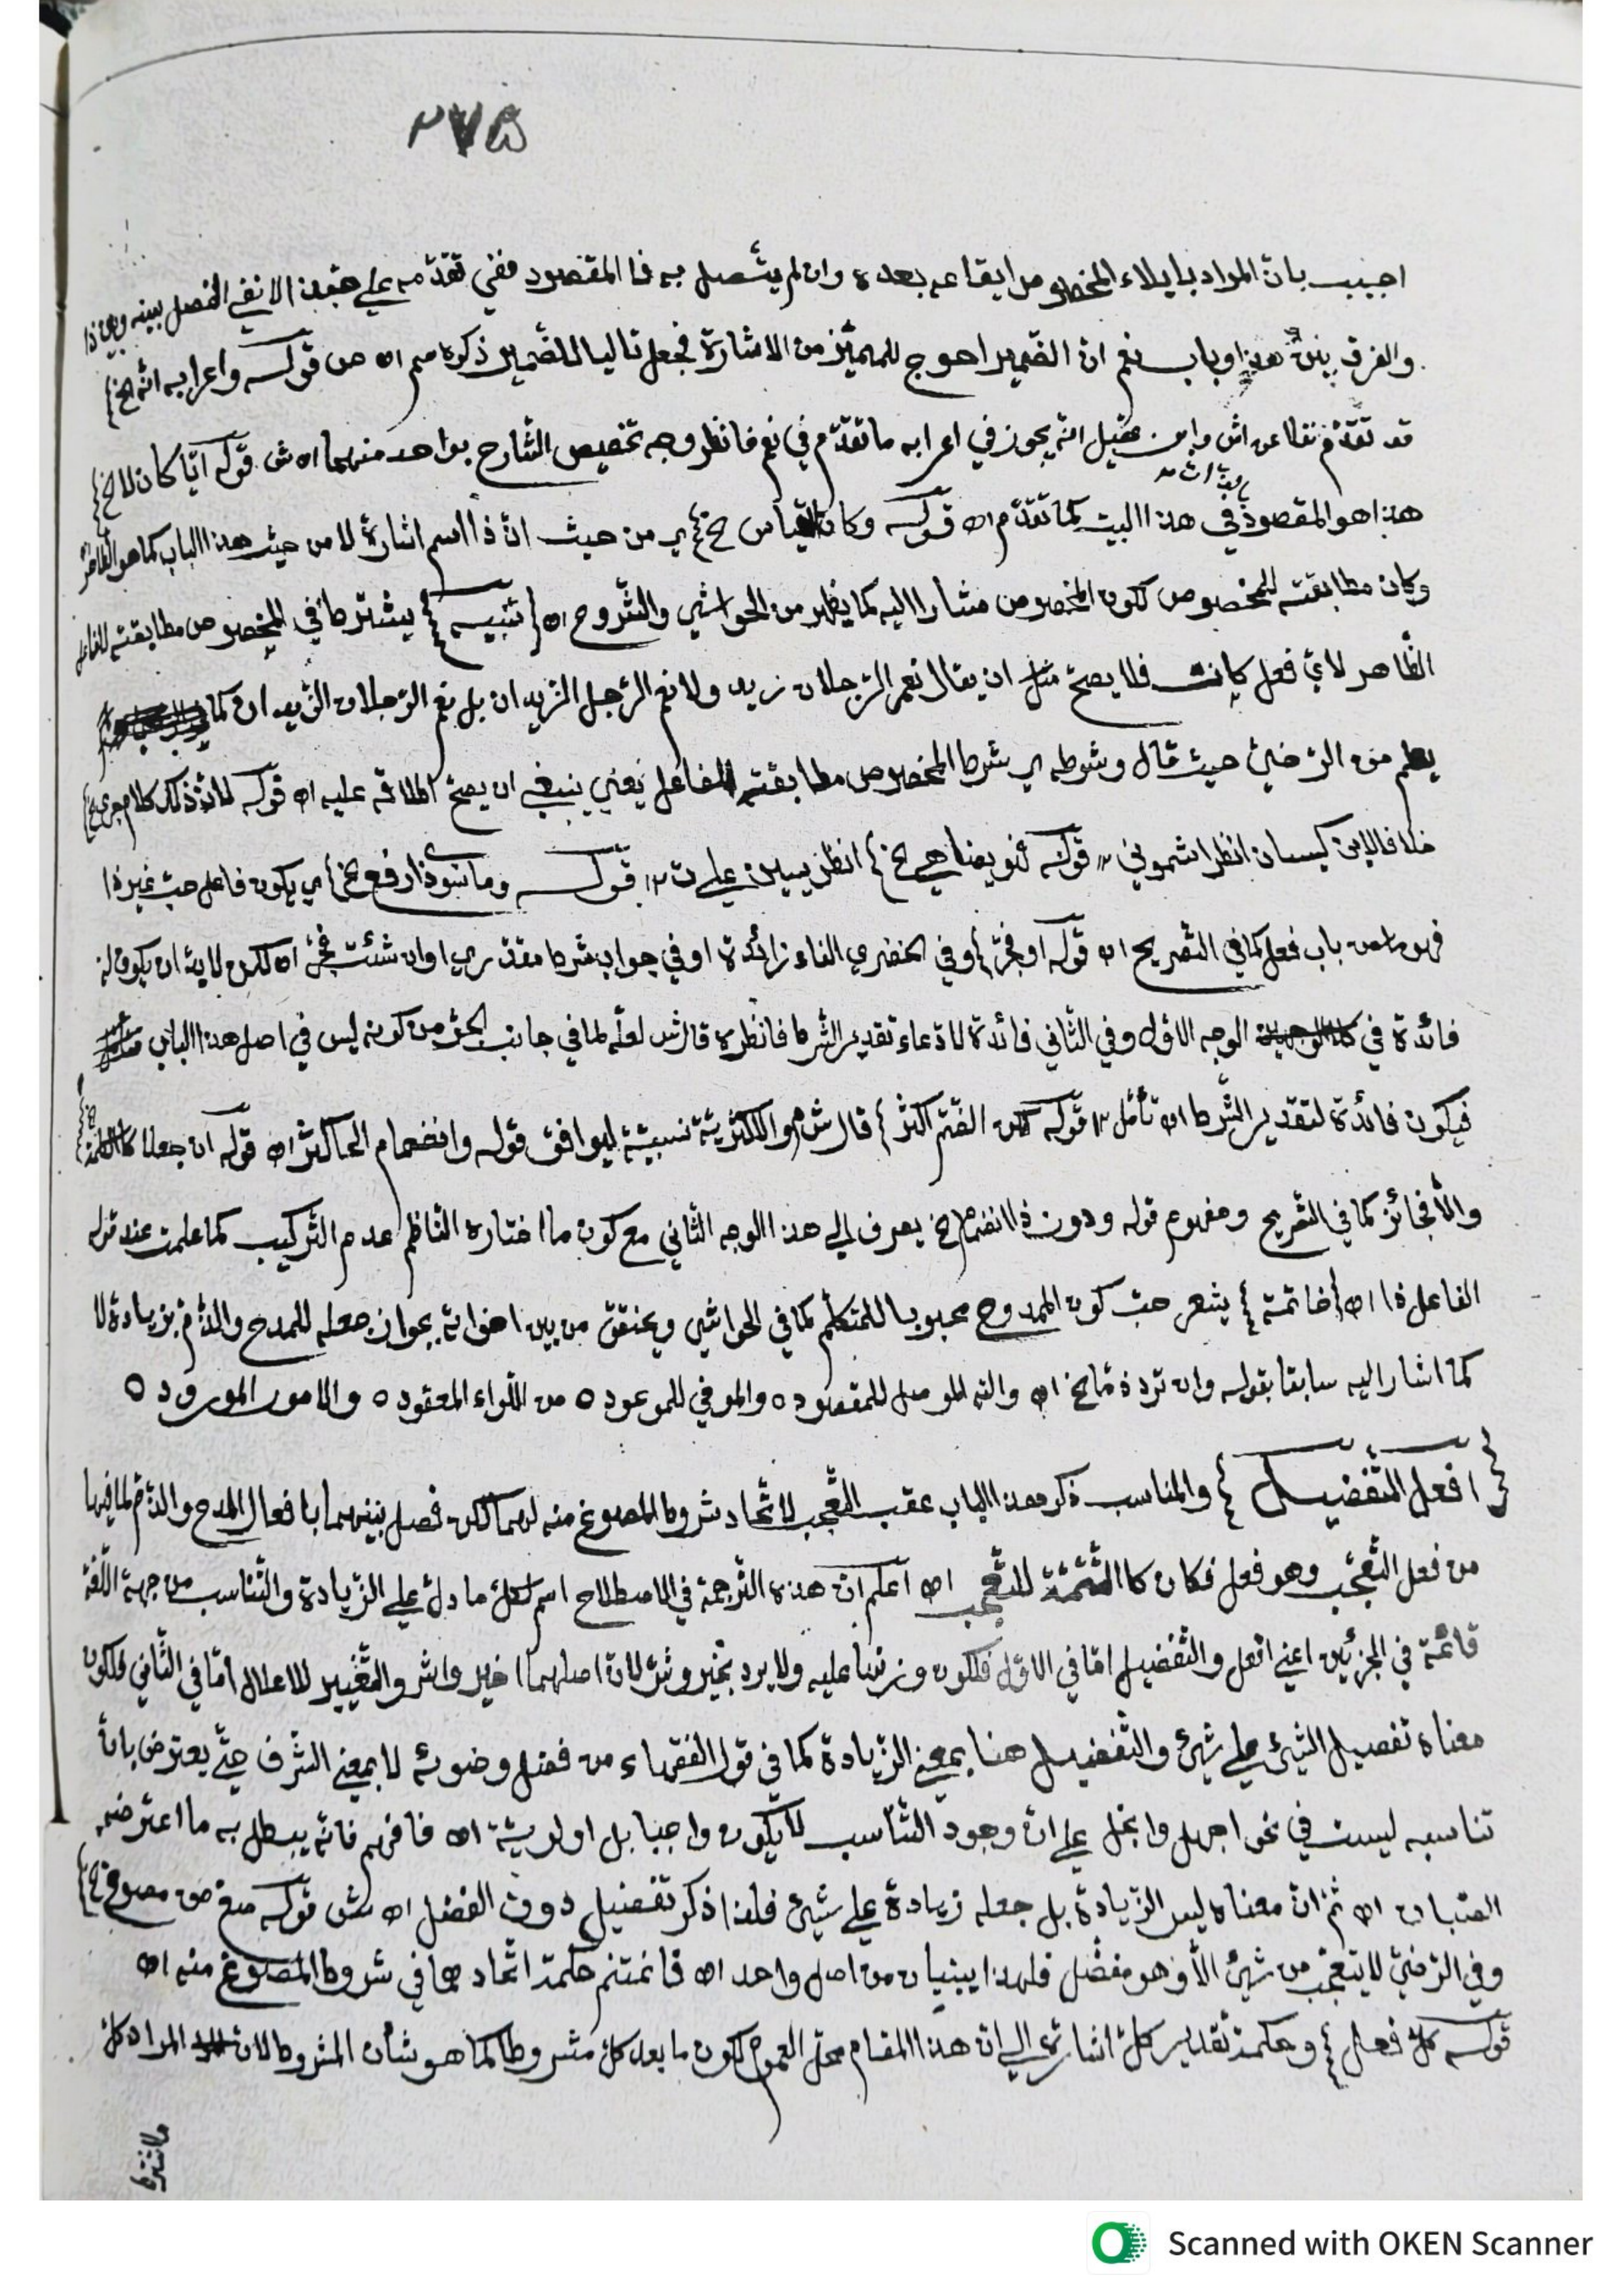 اجيب بان المراد بايلاء المخصوص ايقاعه بعده وان لم يتصل به فا المقصود ففي تقدمه على حبذا لا نفي الفصل بينه وبين ذا
والفرق بين هذا وباب نعم ان الضمير احوج للمميز من الاشارة فجعل تاليا للضمير ذكره سم اه ص قوله واعرابه الخ
قد تقدم نقلا عن اش وابن عقيل انه يجوز في اعرابه ما تقدم في نعم فانظر وجه تخصيص الشارح بواحد منهما اه ش قوله ايا كان لا الخ
هذا هو المقصود في هذا البيت كما تقدم اه قوله وكان القياس الخ اي من حيث ان ذا اسم اشارة لا من حيث هذا الباب كما هو الظاهر
وكان مطابقته للمخصوص لكون المخصوص مشارا اليه كما يظهر من الحواشي والشروح اه تنبيه يشترط في المخصوص مطابقته للفاعل
الظاهر لاي فعل كانت فلا يصح مثل ان يقال نعم الرجلان زيد ولا نعم الرجل الزيدان بل نعم الرجلان الزيدان كما
يعلم من الرضي حيث قال وشرطه اي شرط المخصوص مطابقته للفاعل يعني ينبغي ان يصح اطلاقه عليه اه قوله لان ذلك كلام جرى الخ
خلافا لابن كيسان انظر اشموني قوله نحو يفتاهي الخ انظر يسين على ت قوله وما سوى ذا ارفع الخ اي يكون فاعل حب غير ذا
فهو من باب فعل كما في التصريح اه قوله او فجر وفي الخضري الفاء زائدة او في جواب شرط مقدر اي اوان شئت فجر اه لكن لابد ان يكون له
فائدة في الوجه الاول وفي الثاني فائدة لادعاء تقدير الشرط فانظره قال ش لعله لما في جانب الجر من كونه ليس في اصل هذا الباب
فيكون فائدة لتقدير الشرط اه تأمل قوله لكن الضم اكثر قال ش والاكثرية نسبية ليوافق قوله وانضمام الحا كثر اه قوله ان جعلا كالكلمة
والا فجائز كما في التصريح ومفهوم قوله ودون ذا انضمام الخ يصرف الى هذا الوجه الثاني مع كون ما اختاره الناظم عدم التركيب كما علمت عند قوله
الفاعل ذا اه خاتمة يشعر حب كون الممدوح محبوبا للمتكلم كما في الحواشي ويختص من بين اخواته بجواز جعله للمدح والذم بزيادة لا
كما اشار اليه سابقا بقوله وان ترد ذما الخ اه والله الموصل للمقصود ه والموفي للموعود ه من اللواء المعقود ه والامور المورود ه
افعل التفضيل والمناسب ذكر هذا الباب عقب التعجب لاتحاد شروط المصوغ منه لهما لكن فصل بينهما بافعال المدح والذم لما فيها
من فعل التعجب وهو فعل فكان كالتتمة للتعجب اه اعلم ان هذه الترجمة في الاصطلاح اسم لكل ما دل على الزيادة والتناسب من جهة اللغة
قائمة في الجزئين اعني افعل والتفضيل اما في الاول فلكون وزنها عليه ولا يرد بخير وشر لان اصلهما اخير واشر والتغيير للاعلال اما في الثاني فلكون
معناه تفضيل الشيئ على شيئ والتفضيل هنا بمعنى الزيادة كما في قول الفقهاء من فضل وضوئه لا بمعنى الشرف حتى يعترض بان
تناسبه ليست في نحو اجهل وابخل على ان وجود التناسب لا يكون واجبا بل اولوية اه فافهم فانه يبطل به ما اعترضه
الصبان اه ثم ان معناه ليس الزيادة بل جعله زيادة على شيئ فلذا ذكر تفضيل دون الفضل اه ش قوله صغ من مصوغ الخ
وفي الرضي لا يتعجب من شيئ الا وهو مفضل فلهذا يبنيان من اصل واحد اه فاغتنم حكمة اتحادهما في شروط المصوغ منه اه
قوله كل فعل وحكمة تقدير كل اشارة الى ان هذا المقام محل العموم لكون ما بعد كل مشروطا كما هو شأن المشروط لان المراد كل